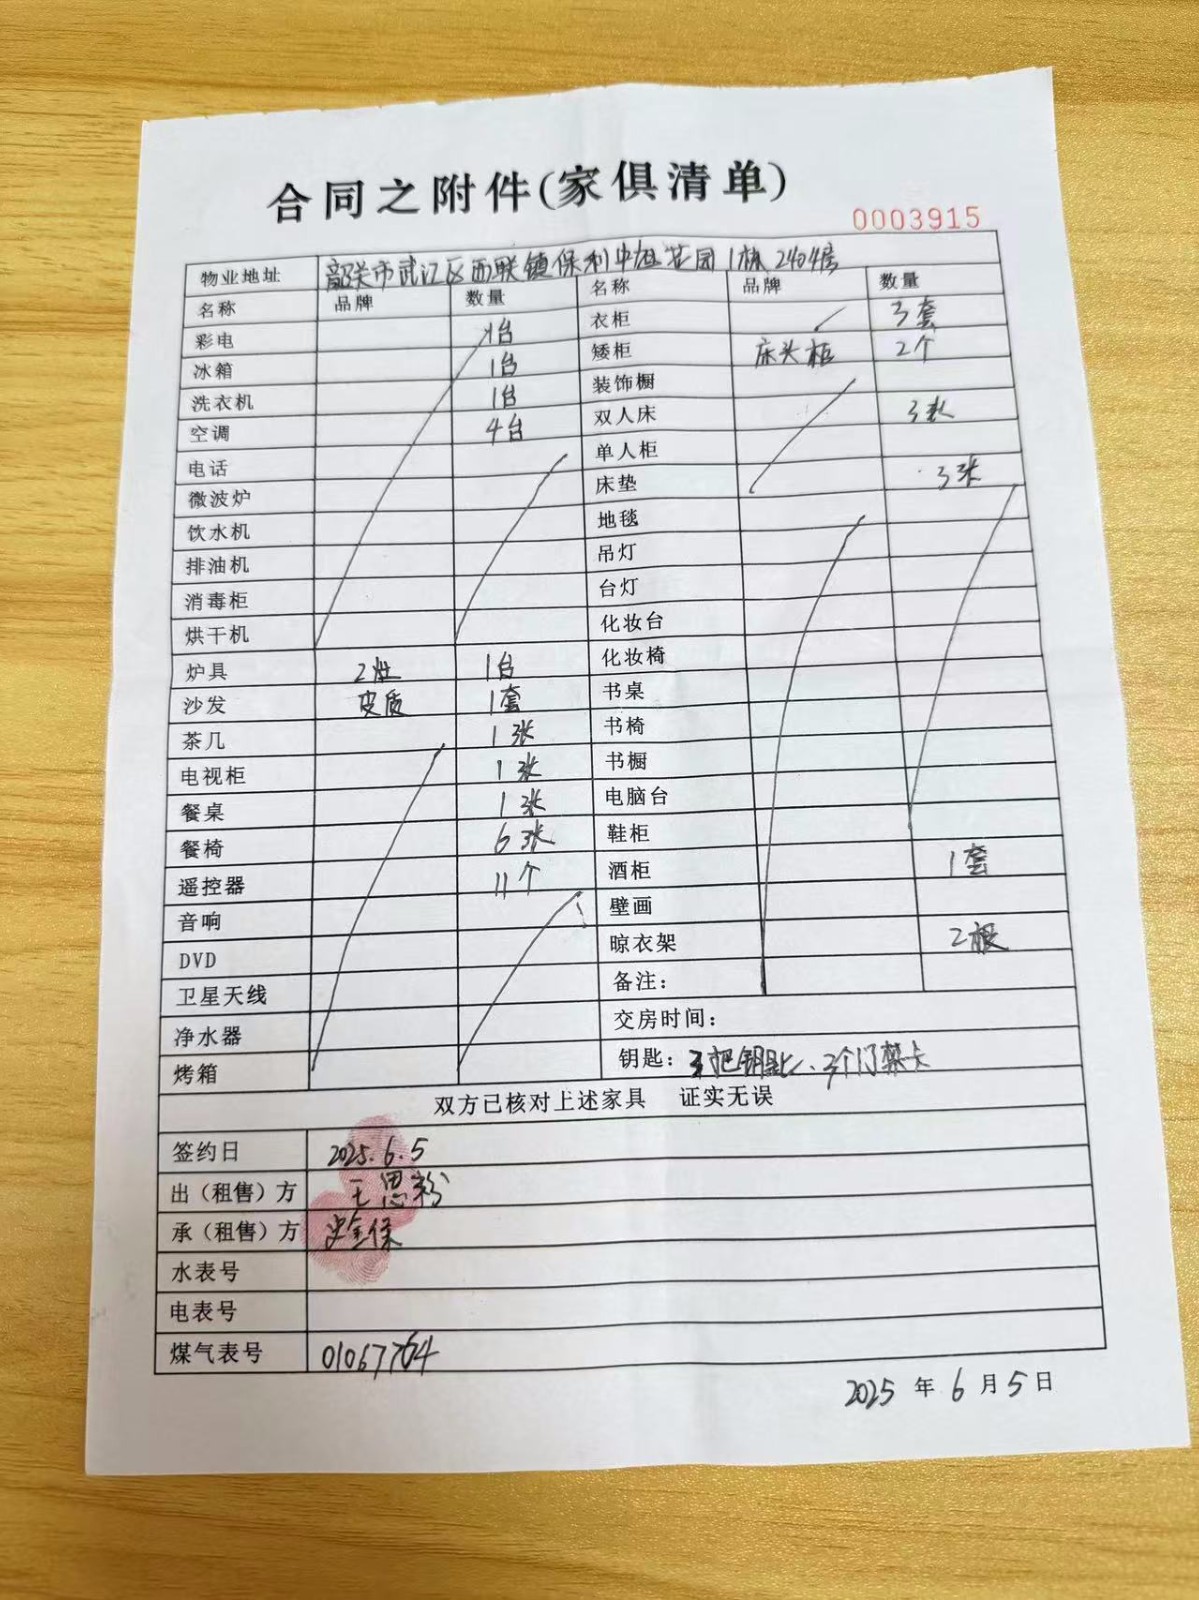 合同之附件(家俱清单)
0003915
物业地址 韶关市武江区西联镇保利中宸花园1栋2404房
名称 品牌 数量 名称 品牌 数量
彩电 1台 衣柜 3套
冰箱 1台 矮柜 床头柜 2个
洗衣机 1台 装饰橱
空调 4台 双人床 3张
电话 单人柜
微波炉 床垫 3张
饮水机 地毯
排油机 吊灯
消毒柜 台灯
烘干机 化妆台
炉具 2灶 1台 化妆椅
沙发 皮质 1套 书桌
茶几 1张 书椅
电视柜 1张 书橱
餐桌 1张 电脑台
餐椅 6张 鞋柜
遥控器 11个 酒柜 1套
音响 壁画
DVD 晾衣架 2根
卫星天线 备注:
净水器 交房时间:
烤箱 钥匙: 3把钥匙、3个门禁卡
双方已核对上述家具 证实无误
签约日 2025.6.5
出(租售)方 王思
承(租售)方 史金保
水表号
电表号
煤气表号 01067764
2025年6月5日